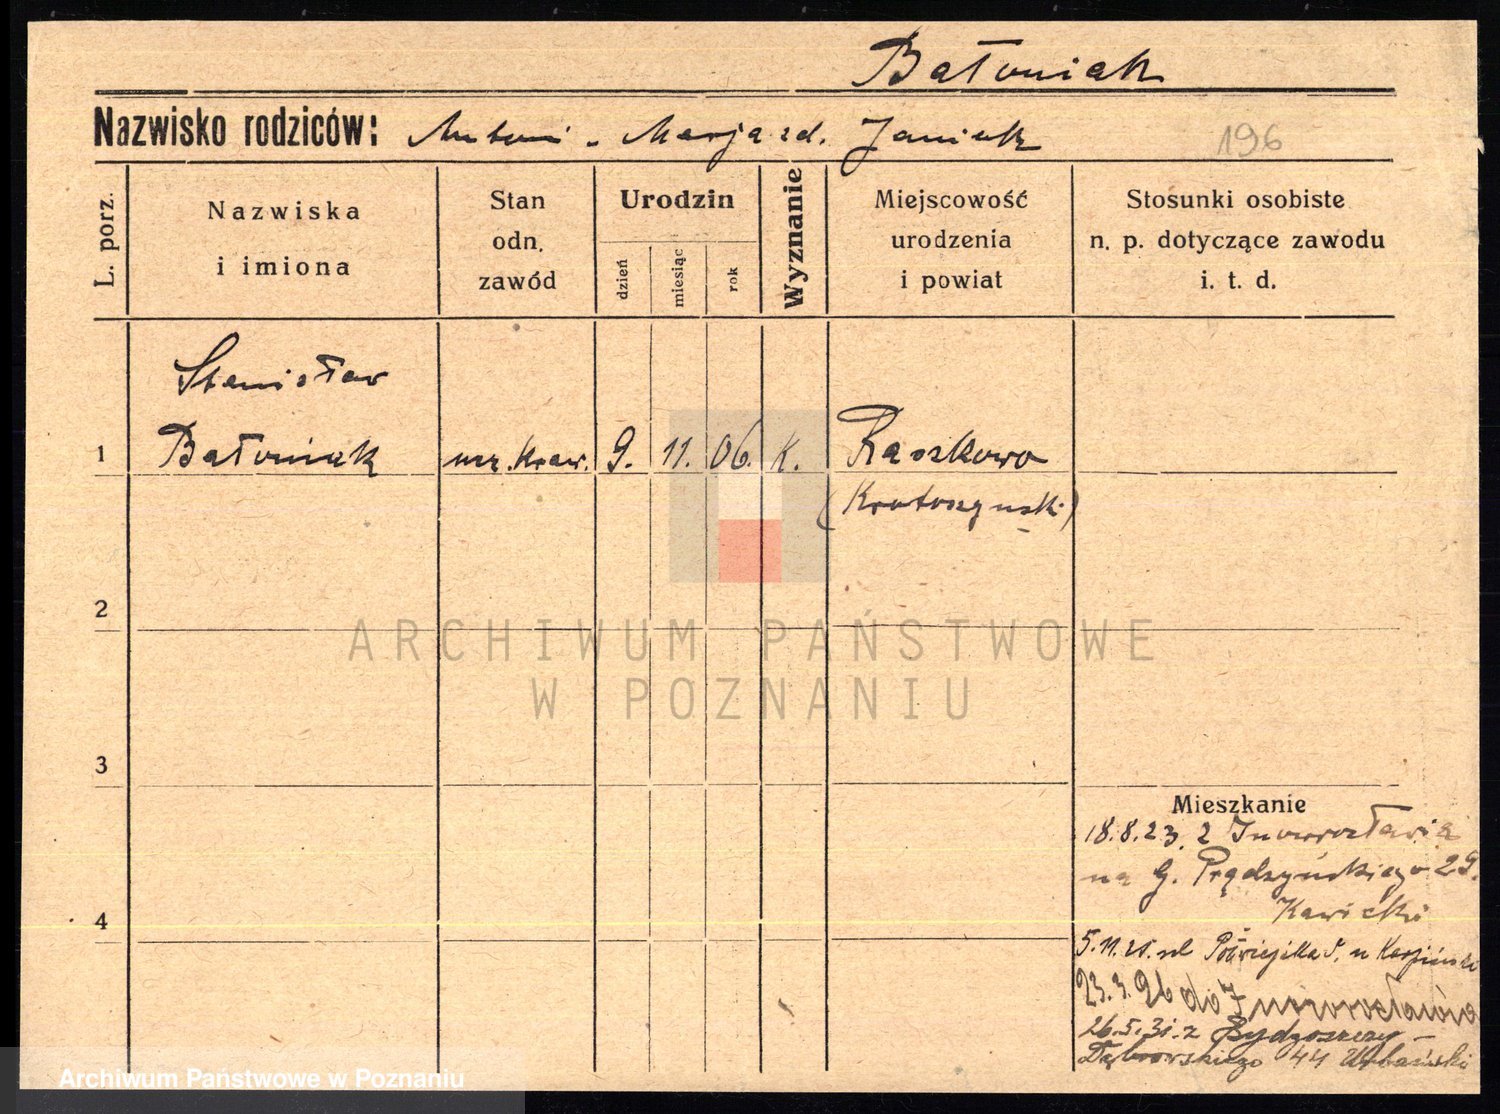 Bałoniak
Nazwisko rodziców: Antoni - Marja zd. Janiak 196
L. porz.
Nazwiska
i imiona
Stan
odn.
zawód
Urodzin
dzień
miesiąc
rok
Wyznanie
Miejscowość
urodzenia
i powiat
Stosunki osobiste
n. p. dotyczące zawodu
i. t. d.
Stanisław
1 Bałoniak ucz. kraw. 9. 11. 06. K. Raszkowo
(Krotoszyński)
2
ARCHIWUM PAŃSTWOWE
W POZNANIU
3
Mieszkanie
18.8.23. z Inowrocławia
na G. Prądzyńskiego 29.
Kawicki
4
5.11.25. ul u Karpiński
23.3.26 do Inowrocławia
26.5.31. z Bydgoszczy -
Dąbrowskiego 44 Urbański
Archiwum Państwowe w Poznaniu